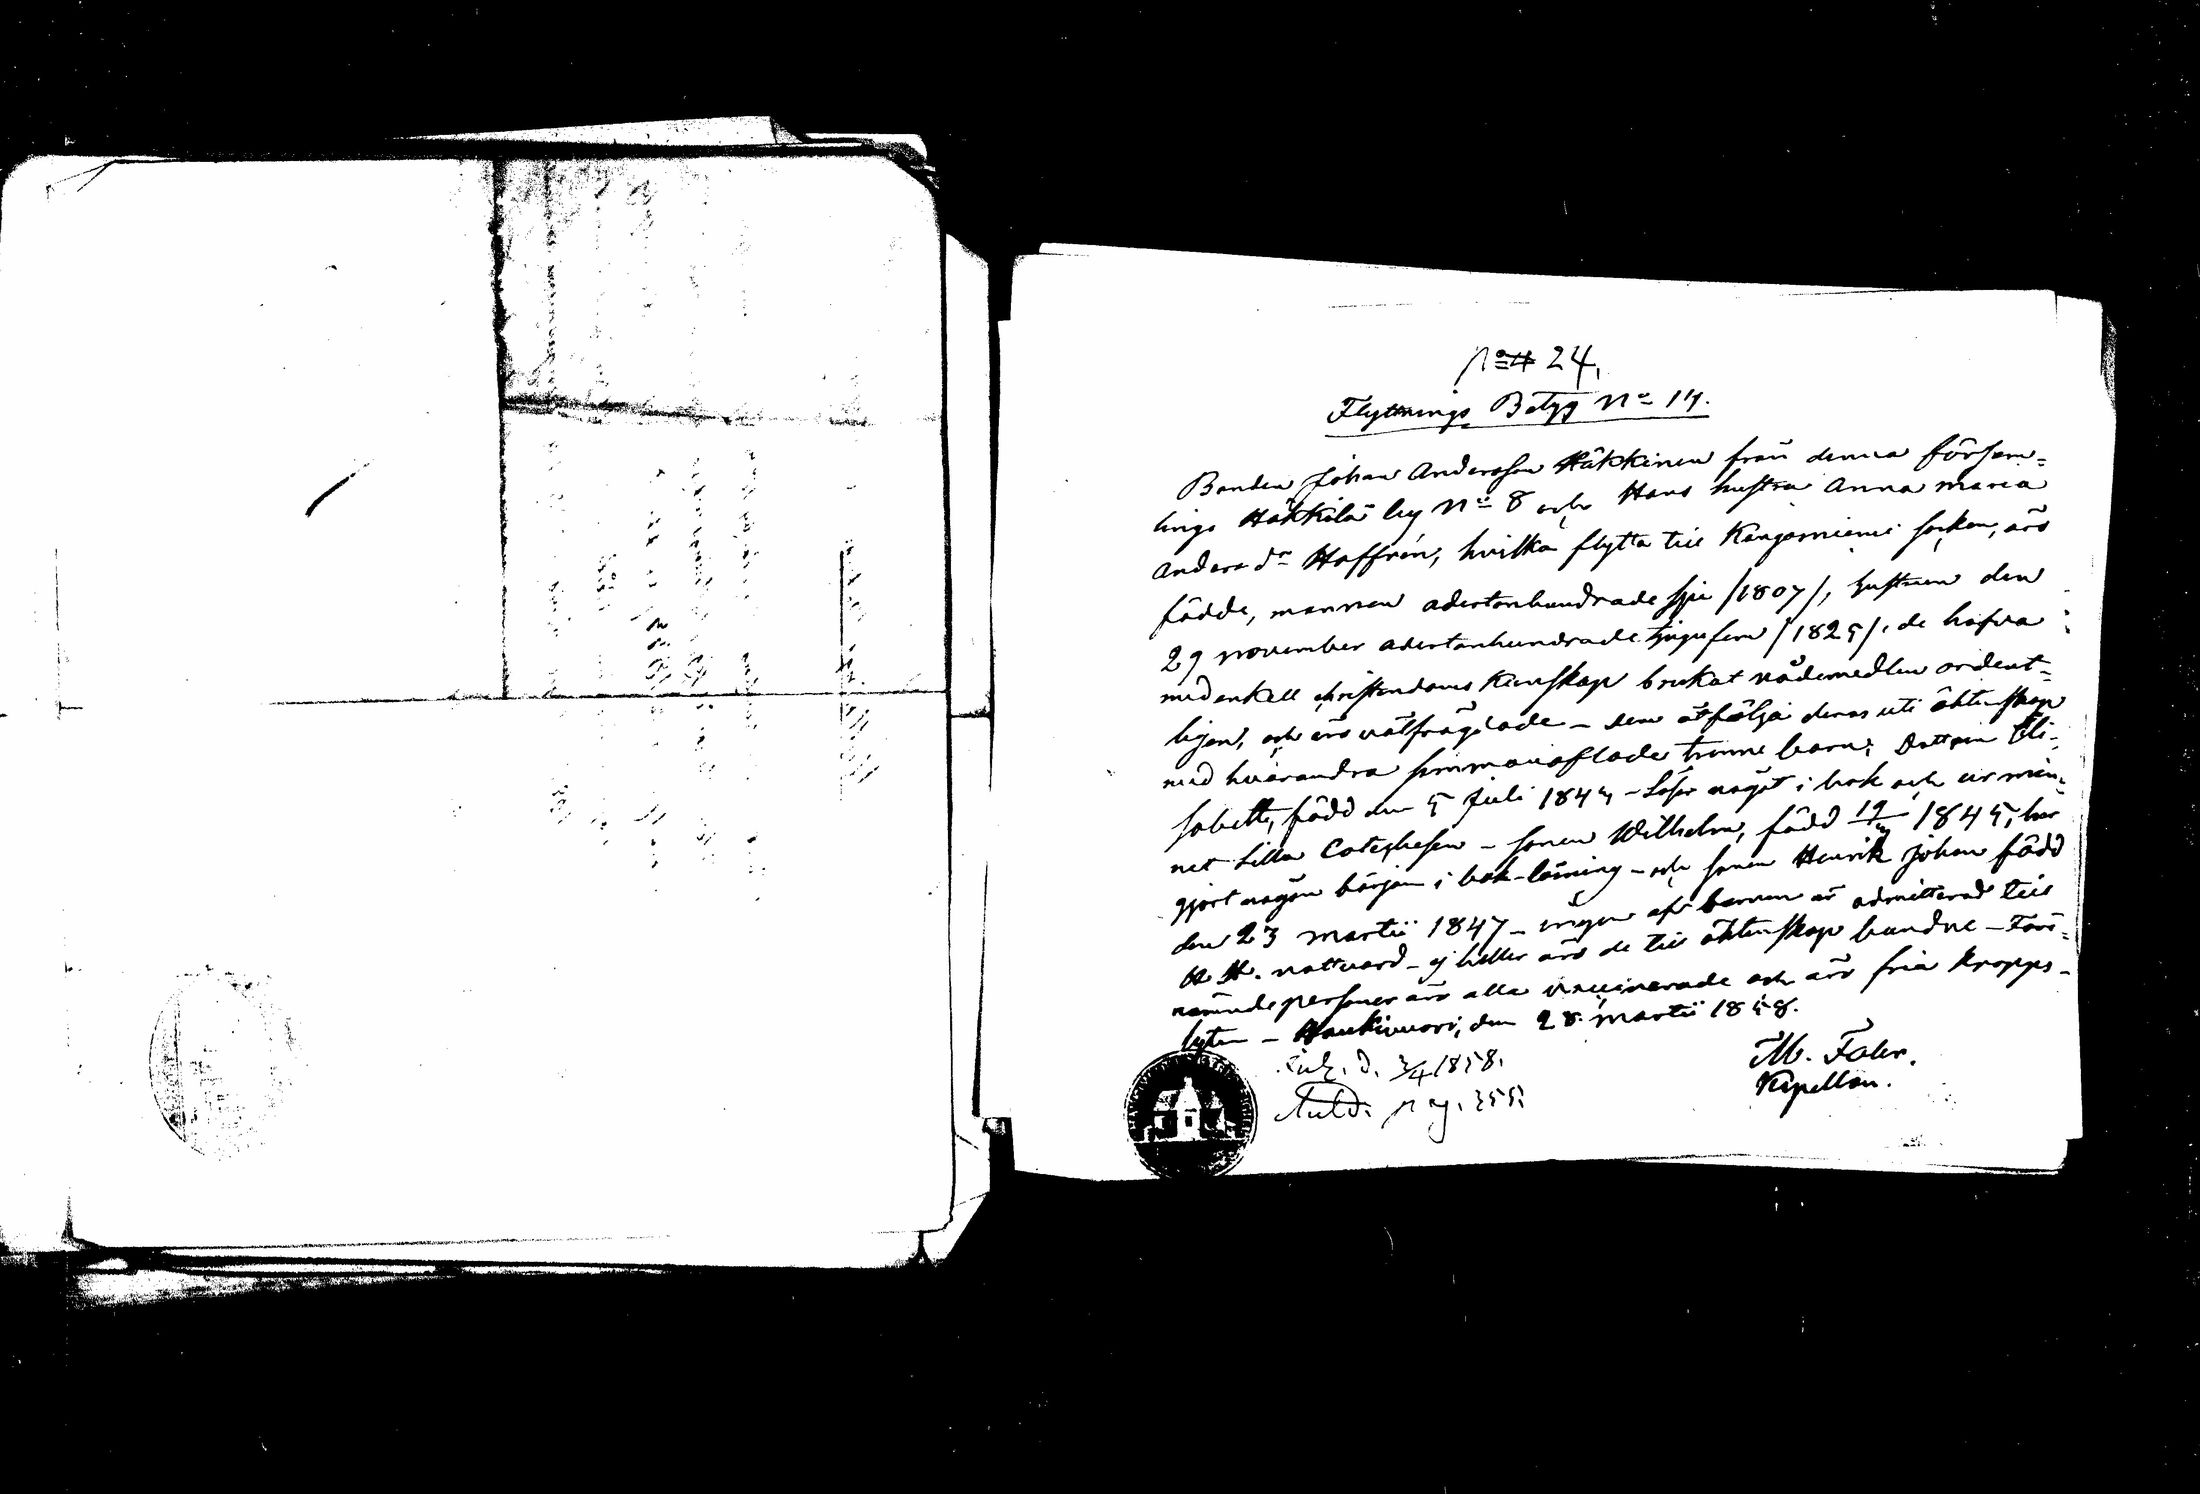 No 24.
Flyttnings Betyg No 14.
Bonden Johan Andersson Häkkinen från denna försam=
lings Häkkilä by No 8 och Hans hustru Anna Maria
Anders dr Hoffrén, hvilka flytta till Kangasniemi socken, äro
födde, mannen adertonhundrade sju /1807/, hustrun den
29 november adertonhundrade tjugufem /1825/, de hafva
med enkell christendoms kunskap brukat nådemedlen ordent=
ligen, och äro välfrägdade – dem åtfölja deras uti äktenskap
med hvarandra sammanaflade trenne barn; Dottren Eli=
sabeth, född den 5 Juli 1844 – Läser något i bok och ur min=
net Lilla Catechesen – sonen Wilhelm, född 1845, har
gjort någon början i bok-läsning – och sonen Henrik Johan född
den 23 Martii 1847 – ingen af barnen är admitterad till
H. H. nattvard – ej heller äro de till äktenskap bundne – Före=
nämnde personer äro alla vaccinerade och äro fria kropps-
lyten – Haukivuori, den 28 Martii 1858.
M. Faler.
Kapellan.
d. 3/4 1858.
pag. 355.